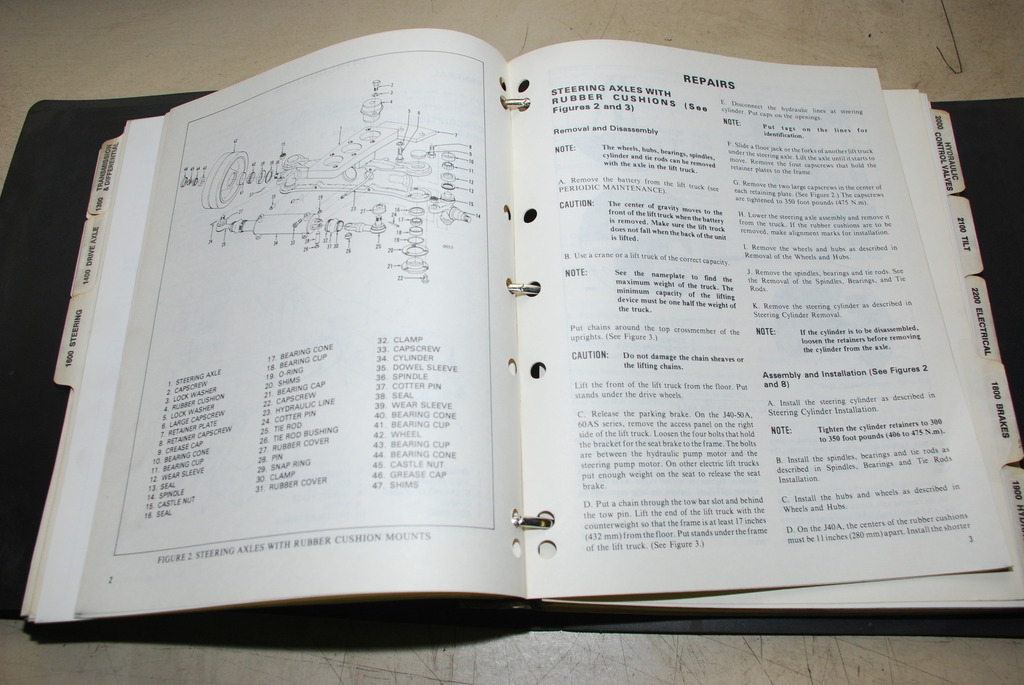 1300 TRANSMISSION
& DIFFERENTIAL
1400 DRIVE AXLE
1600 STEERING
1. STEERING AXLE
2. CAPSCREW
3. LOCK WASHER
4. RUBBER CUSHION
5. LOCK WASHER
6. LARGE CAPSCREW
7. RETAINER PLATE
8. RETAINER CAPSCREW
9. CREASE CAP
10. BEARING CONE
11. BEARING CUP
12. WEAR SLEEVE
13. SEAL
14. SPINDLE
15. CASTLE NUT
16. SEAL
17. BEARING CONE
18. BEARING CUP
19. O-RING
20. SHIMS
21. BEARING CAP
22. CAPSCREW
23. HYDRAULIC LINE
24. COTTER PIN
25. TIE ROD
26. TIE ROD BUSHING
27. RUBBER COVER
28. PIN
29. SNAP RING
30. CLAMP
31. RUBBER COVER
32. CLAMP
33. CAPSCREW
34. CYLINDER
35. DOWEL SLEEVE
36. SPINDLE
37. COTTER PIN
38. SEAL
39. WEAR SLEEVE
40. BEARING CONE
41. BEARING CUP
42. WHEEL
43. BEARING CUP
44. BEARING CONE
45. CASTLE NUT
46. GREASE CAP
47. SHIMS
FIGURE 2. STEERING AXLES WITH RUBBER CUSHION MOUNTS
2
REPAIRS
STEERING AXLES WITH
RUBBER CUSHIONS (See
Figures 2 and 3)
Removal and Disassembly
NOTE: The wheels, hubs, bearings, spindles,
cylinder and tie rods can be removed
with the axle in the lift truck.
A. Remove the battery from the lift truck (see
PERIODIC MAINTENANCE).
CAUTION: The center of gravity moves to the
front of the lift truck when the battery
is removed. Make sure the lift truck
does not fall when the back of the unit
is lifted.
B. Use a crane or a lift truck of the correct capacity.
NOTE: See the nameplate to find the
maximum weight of the truck. The
minimum capacity of the lifting
device must be one half the weight of
the truck.
Put chains around the top crossmember of the
uprights. (See Figure 3.)
CAUTION: Do not damage the chain sheaves or
the lifting chains.
Lift the front of the lift truck from the floor. Put
stands under the drive wheels.
C. Release the parking brake. On the J40-50A,
60AS series, remove the access panel on the right
side of the lift truck. Loosen the four bolts that hold
the bracket for the seat brake to the frame. The bolts
are between the hydraulic pump motor and the
steering pump motor. On other electric lift trucks
put enough weight on the seat to release the seat
brake.
D. Put a chain through the tow bar slot and behind
the tow pin. Lift the end of the lift truck with the
counterweight so that the frame is at least 17 inches
(432 mm) from the floor. Put stands under the frame
of the lift truck. (See Figure 3.)
E. Disconnect the hydraulic lines at steering
cylinder. Put caps on the openings.
NOTE: Put tags on the lines for
identification.
F. Slide a floor jack or the forks of another lift truck
under the steering axle. Lift the axle until it starts to
move. Remove the four capscrews that hold the
retainer plates to the frame.
G. Remove the two large capscrews in the center of
each retaining plate. (See Figure 2.) The capscrews
are tightened to 350 foot pounds (475 N.m).
H. Lower the steering axle assembly and remove it
from the truck. If the rubber cushions are to be
removed, make alignment marks for installation.
I. Remove the wheels and hubs as described in
Removal of the Wheels and Hubs.
J. Remove the spindles, bearings and tie rods. See
the Removal of the Spindles, Bearings, and Tie
Rods.
K. Remove the steering cylinder as described in
Steering Cylinder Removal.
NOTE: If the cylinder is to be disassembled,
loosen the retainers before removing
the cylinder from the axle.
Assembly and Installation (See Figures 2
and 8)
A. Install the steering cylinder as described in
Steering Cylinder Installation.
NOTE: Tighten the cylinder retainers to 300
to 350 foot pounds (406 to 475 N.m).
B. Install the spindles, bearing and tie rods as
described in Spindles, Bearings and Tie Rods
Installation.
C. Install the hubs and wheels as described in
Wheels and Hubs.
D. On the J40A, the centers of the rubber cushions
must be 11 inches (280 mm) apart. Install the shorter
3
HYDRAULIC
2000 CONTROL VALVES
2100 TILT
2200 ELECTRICAL
1800 BRAKES
1900